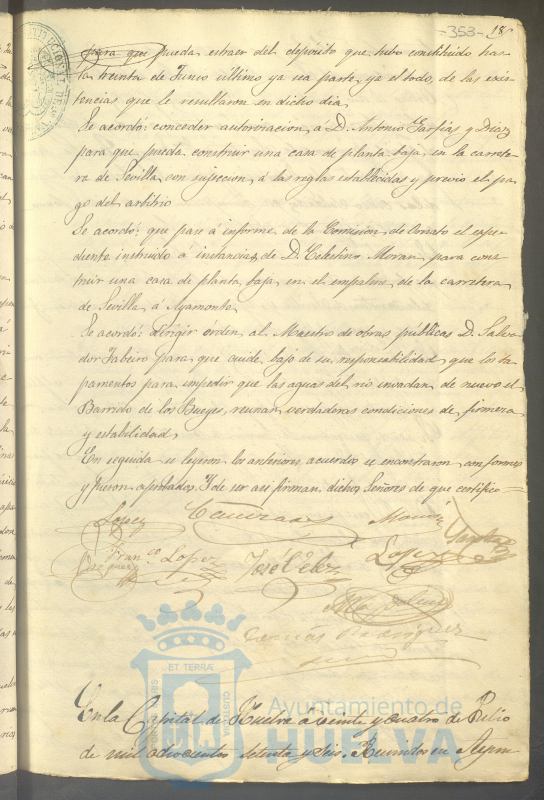 -353- 18
para que pueda extraer del deposito que hubo constituido has
ta treinta de Junio último ya sea parte, ya el todo, de las exis
tencias que le resultaron en dicho dia.
Se acordó: conceder autorizacion, á D. Antonio Garfias y Diaz
para que pueda construir una casa de planta baja, en la carrete
ra de Sevilla, con sujeccion, á las reglas establecidas y previo el pa
go del arbitrio
Se acordó: que pase á informe de la Comision de Ornato el espe
diente instruido á instancias, de D. Celestino Moran, para cons
truir una casa de planta baja, en el empalme, de la carretera
de Sevilla á Ayamonte,
Se acordó: dirigir orden, al Maestro de obras públicas D. Salva
dor Tabeiro para que cuide, bajo de su responsabilidad que los ta
pamentos para impedir que las aguas del rio invadan de nuevo el
Barrido de los Bueyes, reunan verdaderas condiciones de firmeza
y estabilidad,
En seguida se leyeron los anteriores, acuerdos se encontraron, conformes
y fueron aprobados. Y de ser asi firman, dichos Señores de que certifico
Lopez
Franco Lopez José Velez Lopez
Rodriguez
ET TERRÆ
Ayuntamiento de
HUELVA
En la Capital de Huelva á veinte y cuatro de Julio
de mil ochocientos setenta y seis. Reunidos en Ayun